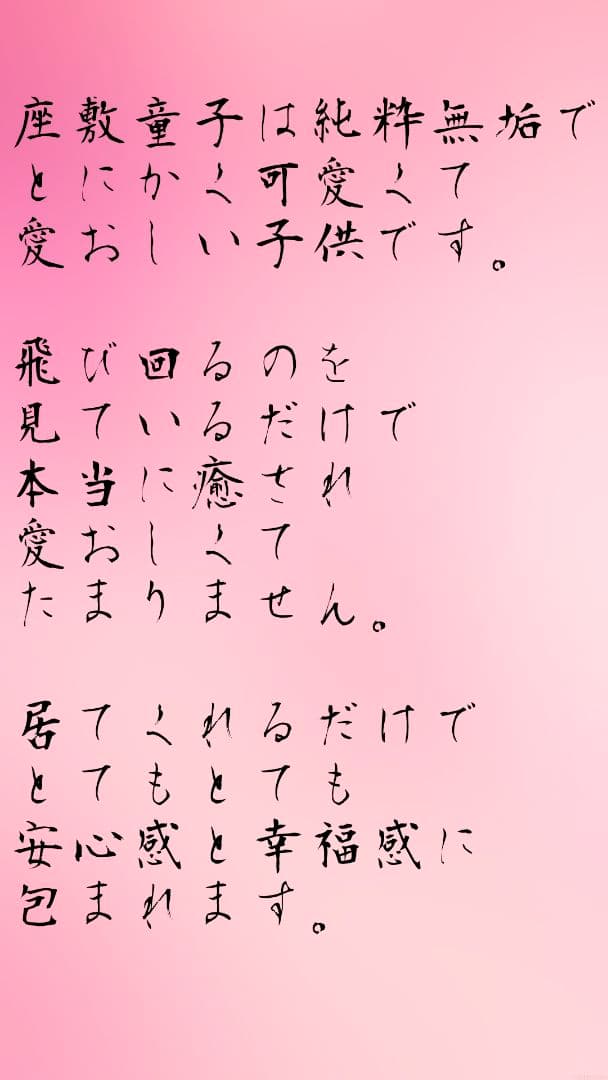 座敷童子は純粋無垢で
とにかく可愛くて
愛おしい子供です。
飛び回るのを
見ているだけで
本当に癒され
愛おしくて
たまりません。
居てくれるだけで
とてもとても
安心感と幸福感に
包まれます。